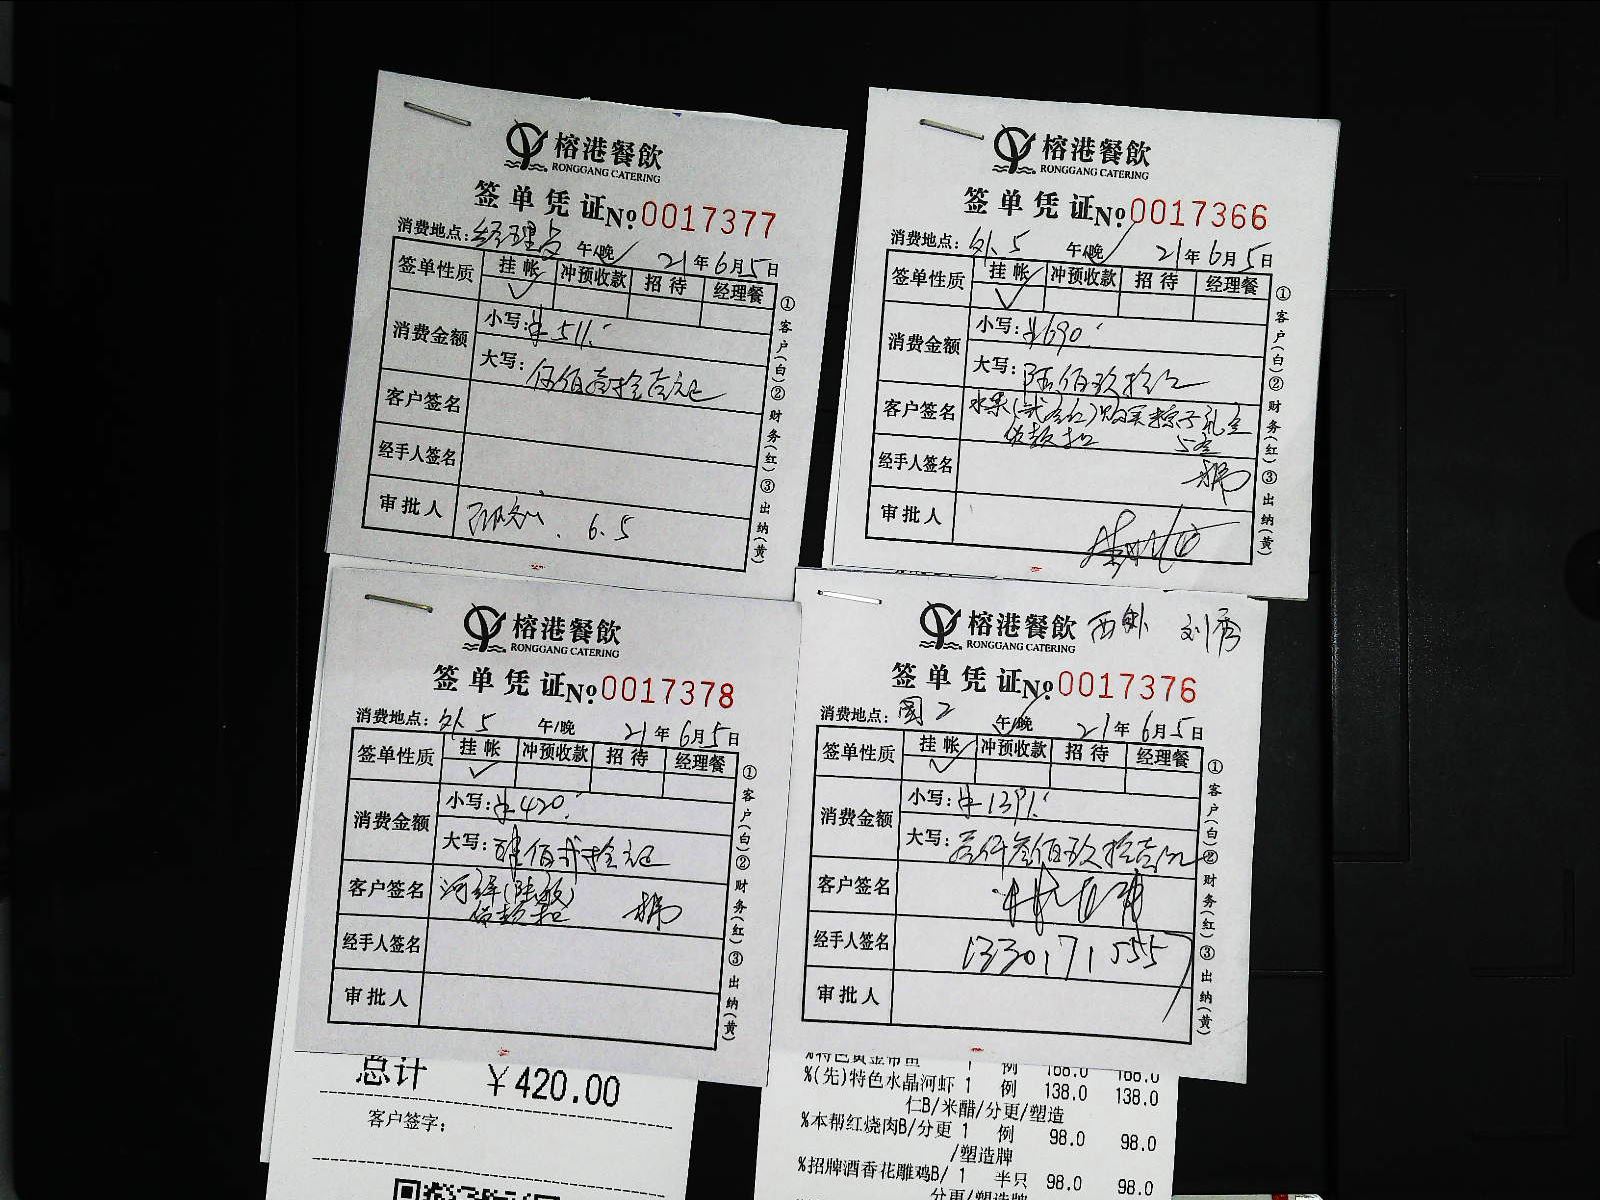 榕港餐飲
RONGGANG CATERING
签单凭证 No 0017377
消费地点: 午/晚 21年6月5日
签单性质 挂帐 冲预收款 招待 经理餐
✓
消费金额 小写:¥511.
大写:伍佰壹拾壹元正
客户签名
经手人签名
审批人 6.5
①客户(白)②财务(红)③出纳(黄)
榕港餐飲
RONGGANG CATERING
签单凭证 No 0017366
消费地点:外5 午/晚 21年6月5日
签单性质 挂帐 冲预收款 招待 经理餐
✓
消费金额 小写:¥690.
大写:陆佰玖拾元
客户签名 水果( )购买粽子礼盒
5盒
经手人签名
审批人
①客户(白)②财务(红)③出纳(黄)
榕港餐飲
RONGGANG CATERING
签单凭证 No 0017378
消费地点:外5 午/晚 21年6月5日
签单性质 挂帐 冲预收款 招待 经理餐
✓
消费金额 小写:¥420.
大写:肆佰贰拾元正
客户签名
经手人签名
审批人
①客户(白)②财务(红)③出纳(黄)
总计 ¥420.00
客户签字:
榕港餐飲 刘秀
RONGGANG CATERING
签单凭证 No 0017376
消费地点: 午/晚 21年6月5日
签单性质 挂帐 冲预收款 招待 经理餐
✓
消费金额 小写:¥1391.
大写:壹仟叁佰玖拾壹元
客户签名
经手人签名 13301715557
审批人
①客户(白)②财务(红)③出纳(黄)
%特色黄金带鱼 1 例 168.0 168.0
%(先)特色水晶河虾 1 例 138.0 138.0
仁B/米醋/分更/塑造
%本帮红烧肉B/分更 1 例 98.0 98.0
/塑造牌
%招牌酒香花雕鸡B/ 1 半只 98.0 98.0
分更/塑造牌